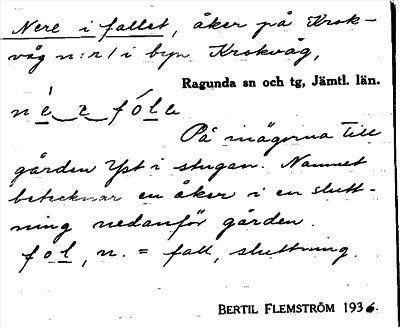 Nere i fallet, åker på Krok-
våg n:r 1 i byn Krokvåg,
Ragunda sn och tg, Jämtl. län.
På ägorna till
gården Yst i stugan. Namnet
betecknar en åker i en slutt-
ning nedanför gården.
fol, n. = fall, sluttning.
BERTIL FLEMSTRÖM 1936.